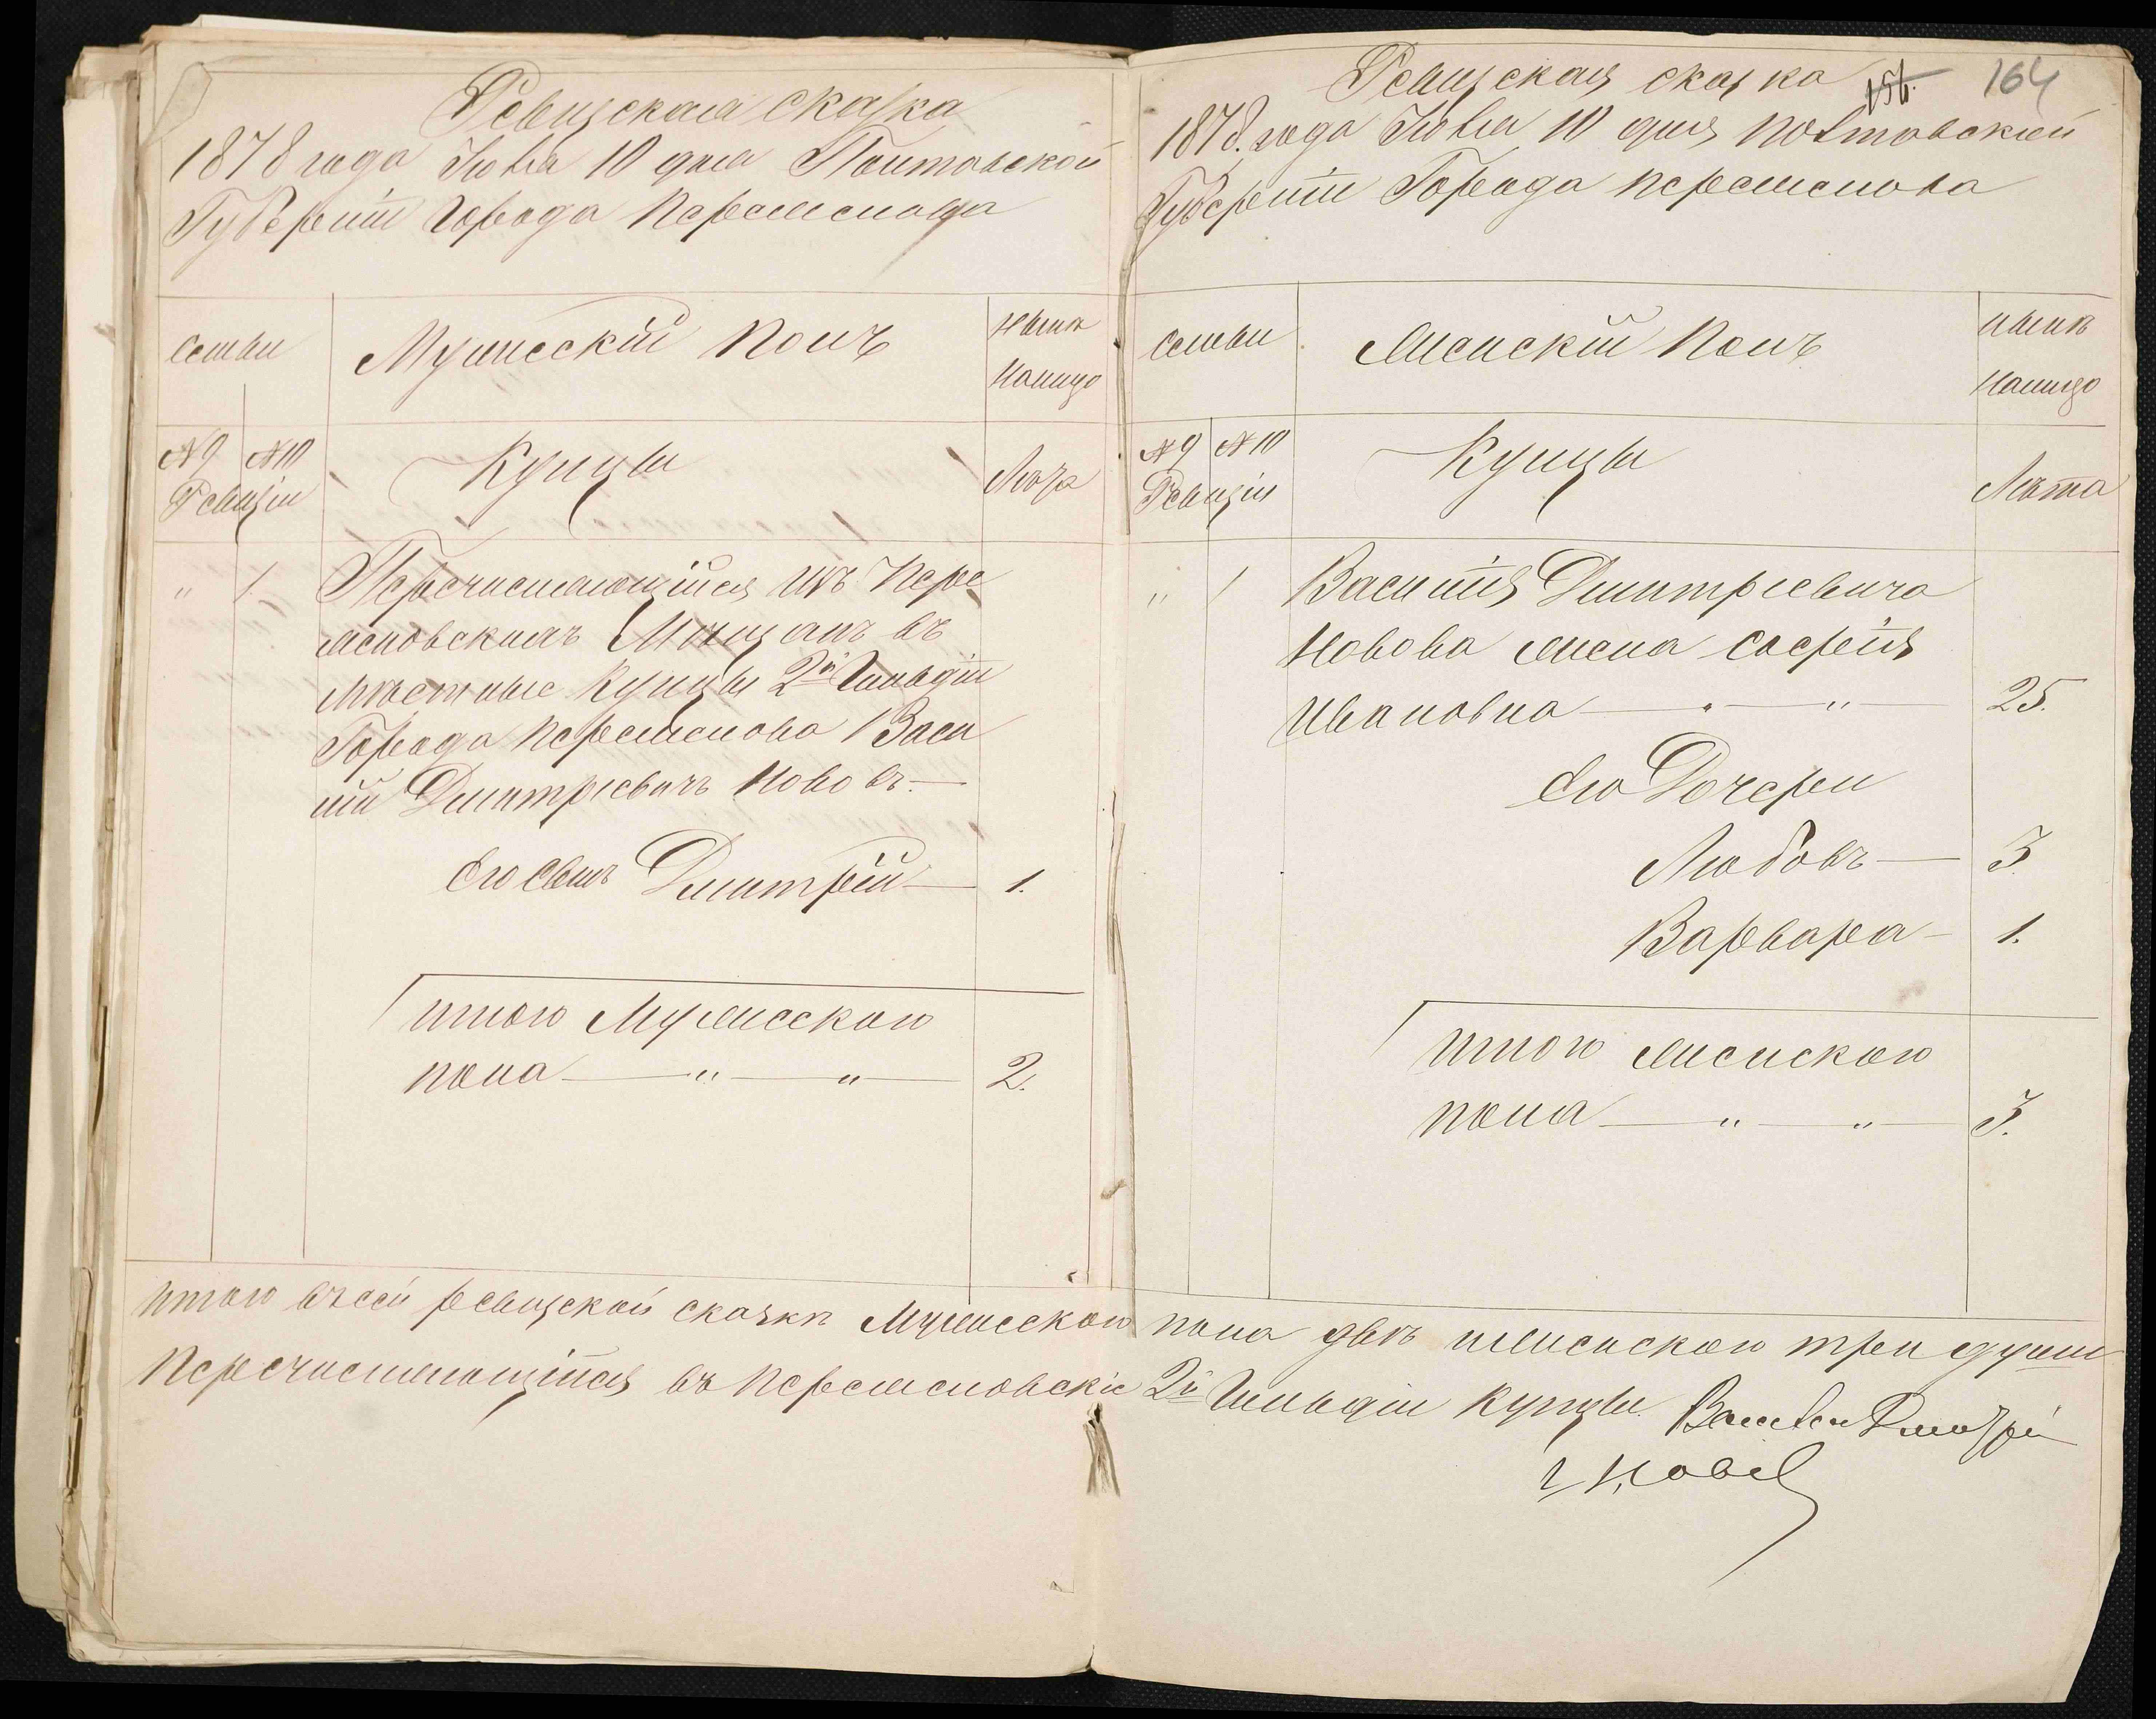 Ревизская сказка
1878 года Июля 10 дня Полтавской
Губерніи Города Переяслова
Семьи
Мужескій Полъ
Нынѣ
Налицо
№ 9 № 10
Ревизіи
Купцы
Лета
" 1. Перечисляющійся изъ Пере
ясловскихъ Мѣщанъ въ
Мѣстные Купцы 2й Гильдіи
Города Переяслова Васи
лій Дмитріевичъ Новов
Его Сынъ Дмитрій 1.
Итого Мужескаго
пола " " 2.
Ревизская сказка
156. 164
1878. года Июля 10 дня Полтавской
Губерніи Города Переяслова
Семьи
Женскій Полъ
Нынѣ
Налицо
№ 9 № 10
Ревизіи
Купцы
Лѣта
" 1 Василія Дмитріевича
Новова жена Софія
Ивановна " 25.
Его Дочери
Любовь 3
Варвара 1.
Итого женского
пола " " 3.
Итого въ сей ревизской сказки Мужеского пола двѣ женского три души
Перечисляющійся въ Переясловскіе 2й Гильдіи Купцы Василий Дмитрий
Новов